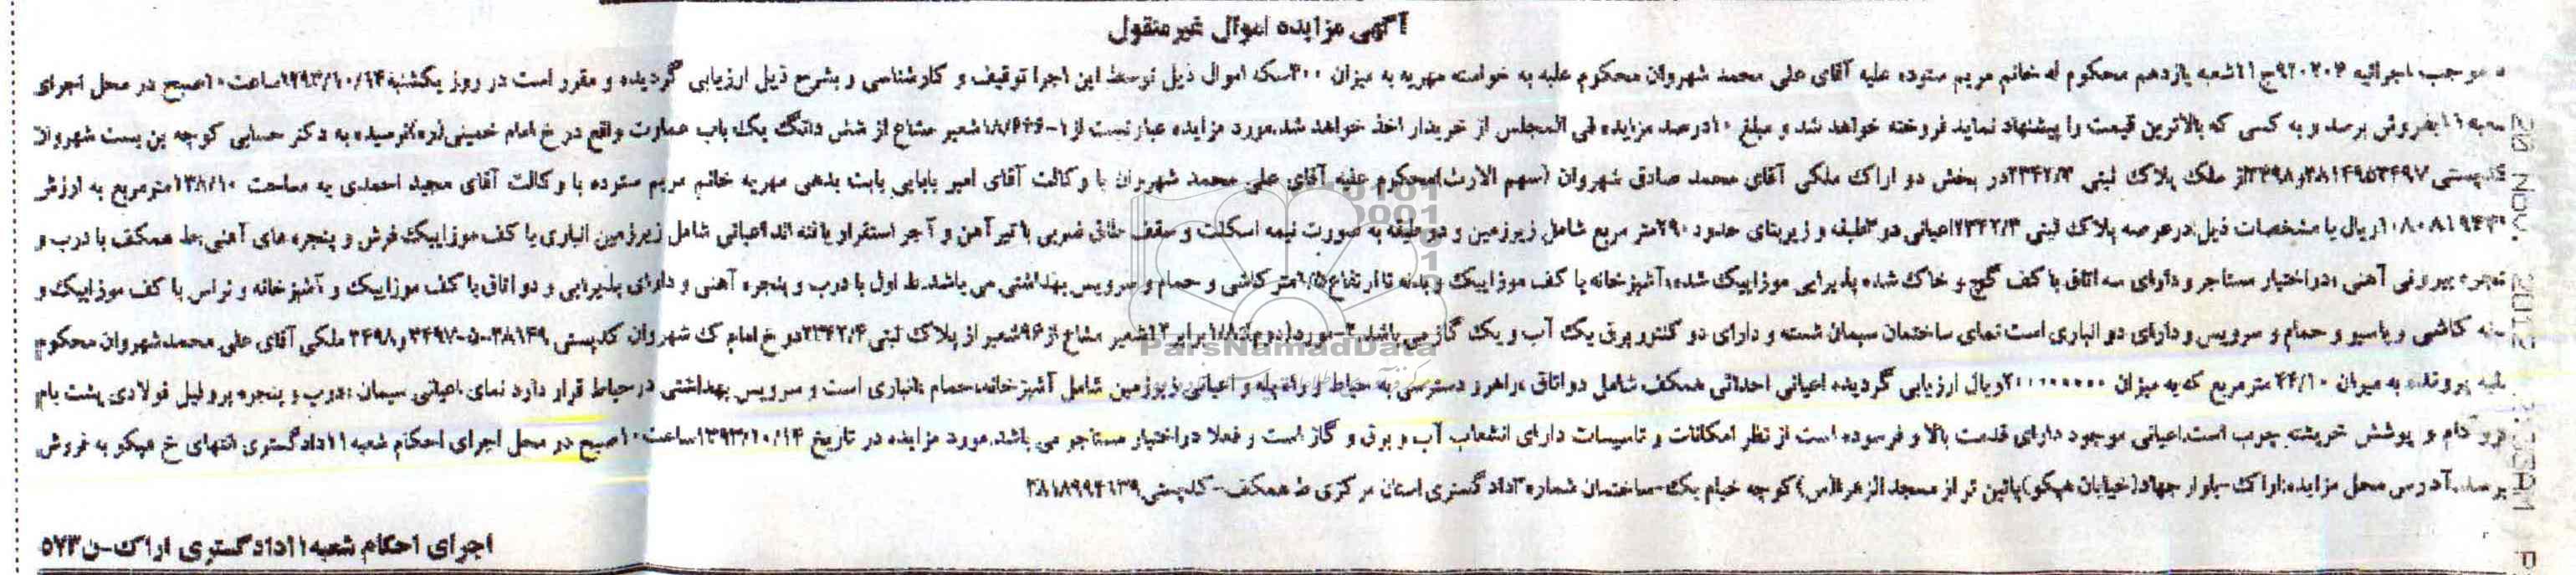 آگهی مزایده اموال غیرمنقول
موجب اجرائیه ج۱۱شعبه یازدهم محکوم له خانم مریم ستوده علیه آقای علی محمد شهروان محکوم علیه به خواسته مهریه به میزان ۳۰۰سکه اموال ذیل توسط این اجرا توقیف و کارشناسی و بشرح ذیل ارزیابی گردیده و مقرر است در روز یکشنبه۱۳۹۳/۱۰/۱۴ساعت۱۰صبح در محل اجرای
بفروش برسد و به کسی که بالاترین قیمت را پیشنهاد نماید فروخته خواهد شد و مبلغ ۱۰درصد مزایده فی المجلس از خریدار اخذ خواهد شد.مورد مزایده عبارتست از۱-۱۸/۶۶۶شعیر مشاع از شش دانگ یک باب عمارت واقع در خ امام خمینی(ره)نرسیده به دکتر حسابی کوچه بن بست شهروان
کدپستی از ملک پلاک ثبتی ۲۳۴۲/۳در بخش دو اراک ملکی آقای محمد صادق شهروان (سهم الارث)محکوم علیه آقای علی محمد شهروان با وکالت آقای امیر بابایی بابت بدهی مهریه خانم مریم ستوده با وکالت آقای مجید احمدی به مساحت ۱۳۸/۱۰مترمربع به ارزش
ریال با مشخصات ذیل:درعرصه پلاک ثبتی ۲۳۴۲/۳اعیانی دو طبقه و زیربنای حدود ۲۹۰متر مربع شامل زیرزمین و دو طبقه به صورت نیمه اسکلت و سقف طاق ضربی با تیرآهن و آجر استقرار یافته اند اعیانی شامل زیرزمین انباری با کف موزاییک فرش و پنجره های آهنی،ط همکف با درب و
پنجره بیرونی آهنی ،دراختیار مستاجر و دارای سه اتاق با کف گچ و خاک شده پذیرایی موزاییک شده،آشپزخانه با کف موزاییک و بدنه تا ارتفاع۱/۵متر کاشی و حمام و سرویس بهداشتی می باشد.ط اول با درب و پنجره آهنی و دارای پذیرایی و دو اتاق با کف موزاییک و آشپزخانه و تراس با کف موزاییک و
بدنه کاشی و پاسیو و حمام و سرویس و دارای دو انباری است نمای ساختمان سیمان شسته و دارای دو کنتور برق یک آب و یک گاز می باشد.۲-مورد(دوم) برابر۱۲شعیر مشاع از۹۶شعیر از پلاک ثبتی ۲۳۴۲/۴در خ امام ک شهروان کدپستی ملکی آقای علی محمدشهروان محکوم
علیه پرونده به میزان ۴۴/۱۰ مترمربع که به میزان ریال ارزیابی گردیده اعیانی احداثی همکف شامل دو اتاق ،راهرو دسترسی به حیاط و راه پله و اعیانی زیرزمین شامل آشپزخانه،حمام ،انباری است و سرویس بهداشتی در حیاط قرار دارد نمای اعیانی سیمان ،درب و پنجره پروفیل فولادی پشت بام
و پوشش خرپشته چرب است.اعیانی موجود دارای قدمت بالا و فرسوده است از نظر امکانات و تاسیسات دارای انشعاب آب و برق و گاز است و فعلا دراختیار مستاجر می باشد.مورد مزایده در تاریخ ۱۳۹۳/۱۰/۱۴ساعت۱۰صبح در محل اجرای احکام شعبه۱۱دادگستری انتهای خ هپکو به فروش
برسد.آدرس محل مزایده:اراک-بلوار جهاد(خیابان هپکو)پائین تر از مسجد الزهرا(س)کوچه خیام یک-ساختمان شماره۲دادگستری استان مرکزی ط همکف-کدپستی۳۸۱۸۹۹۴۱۳۹
اجرای احکام شعبه۱۱دادگستری اراک-ن۵۷۳
ParsNamadData